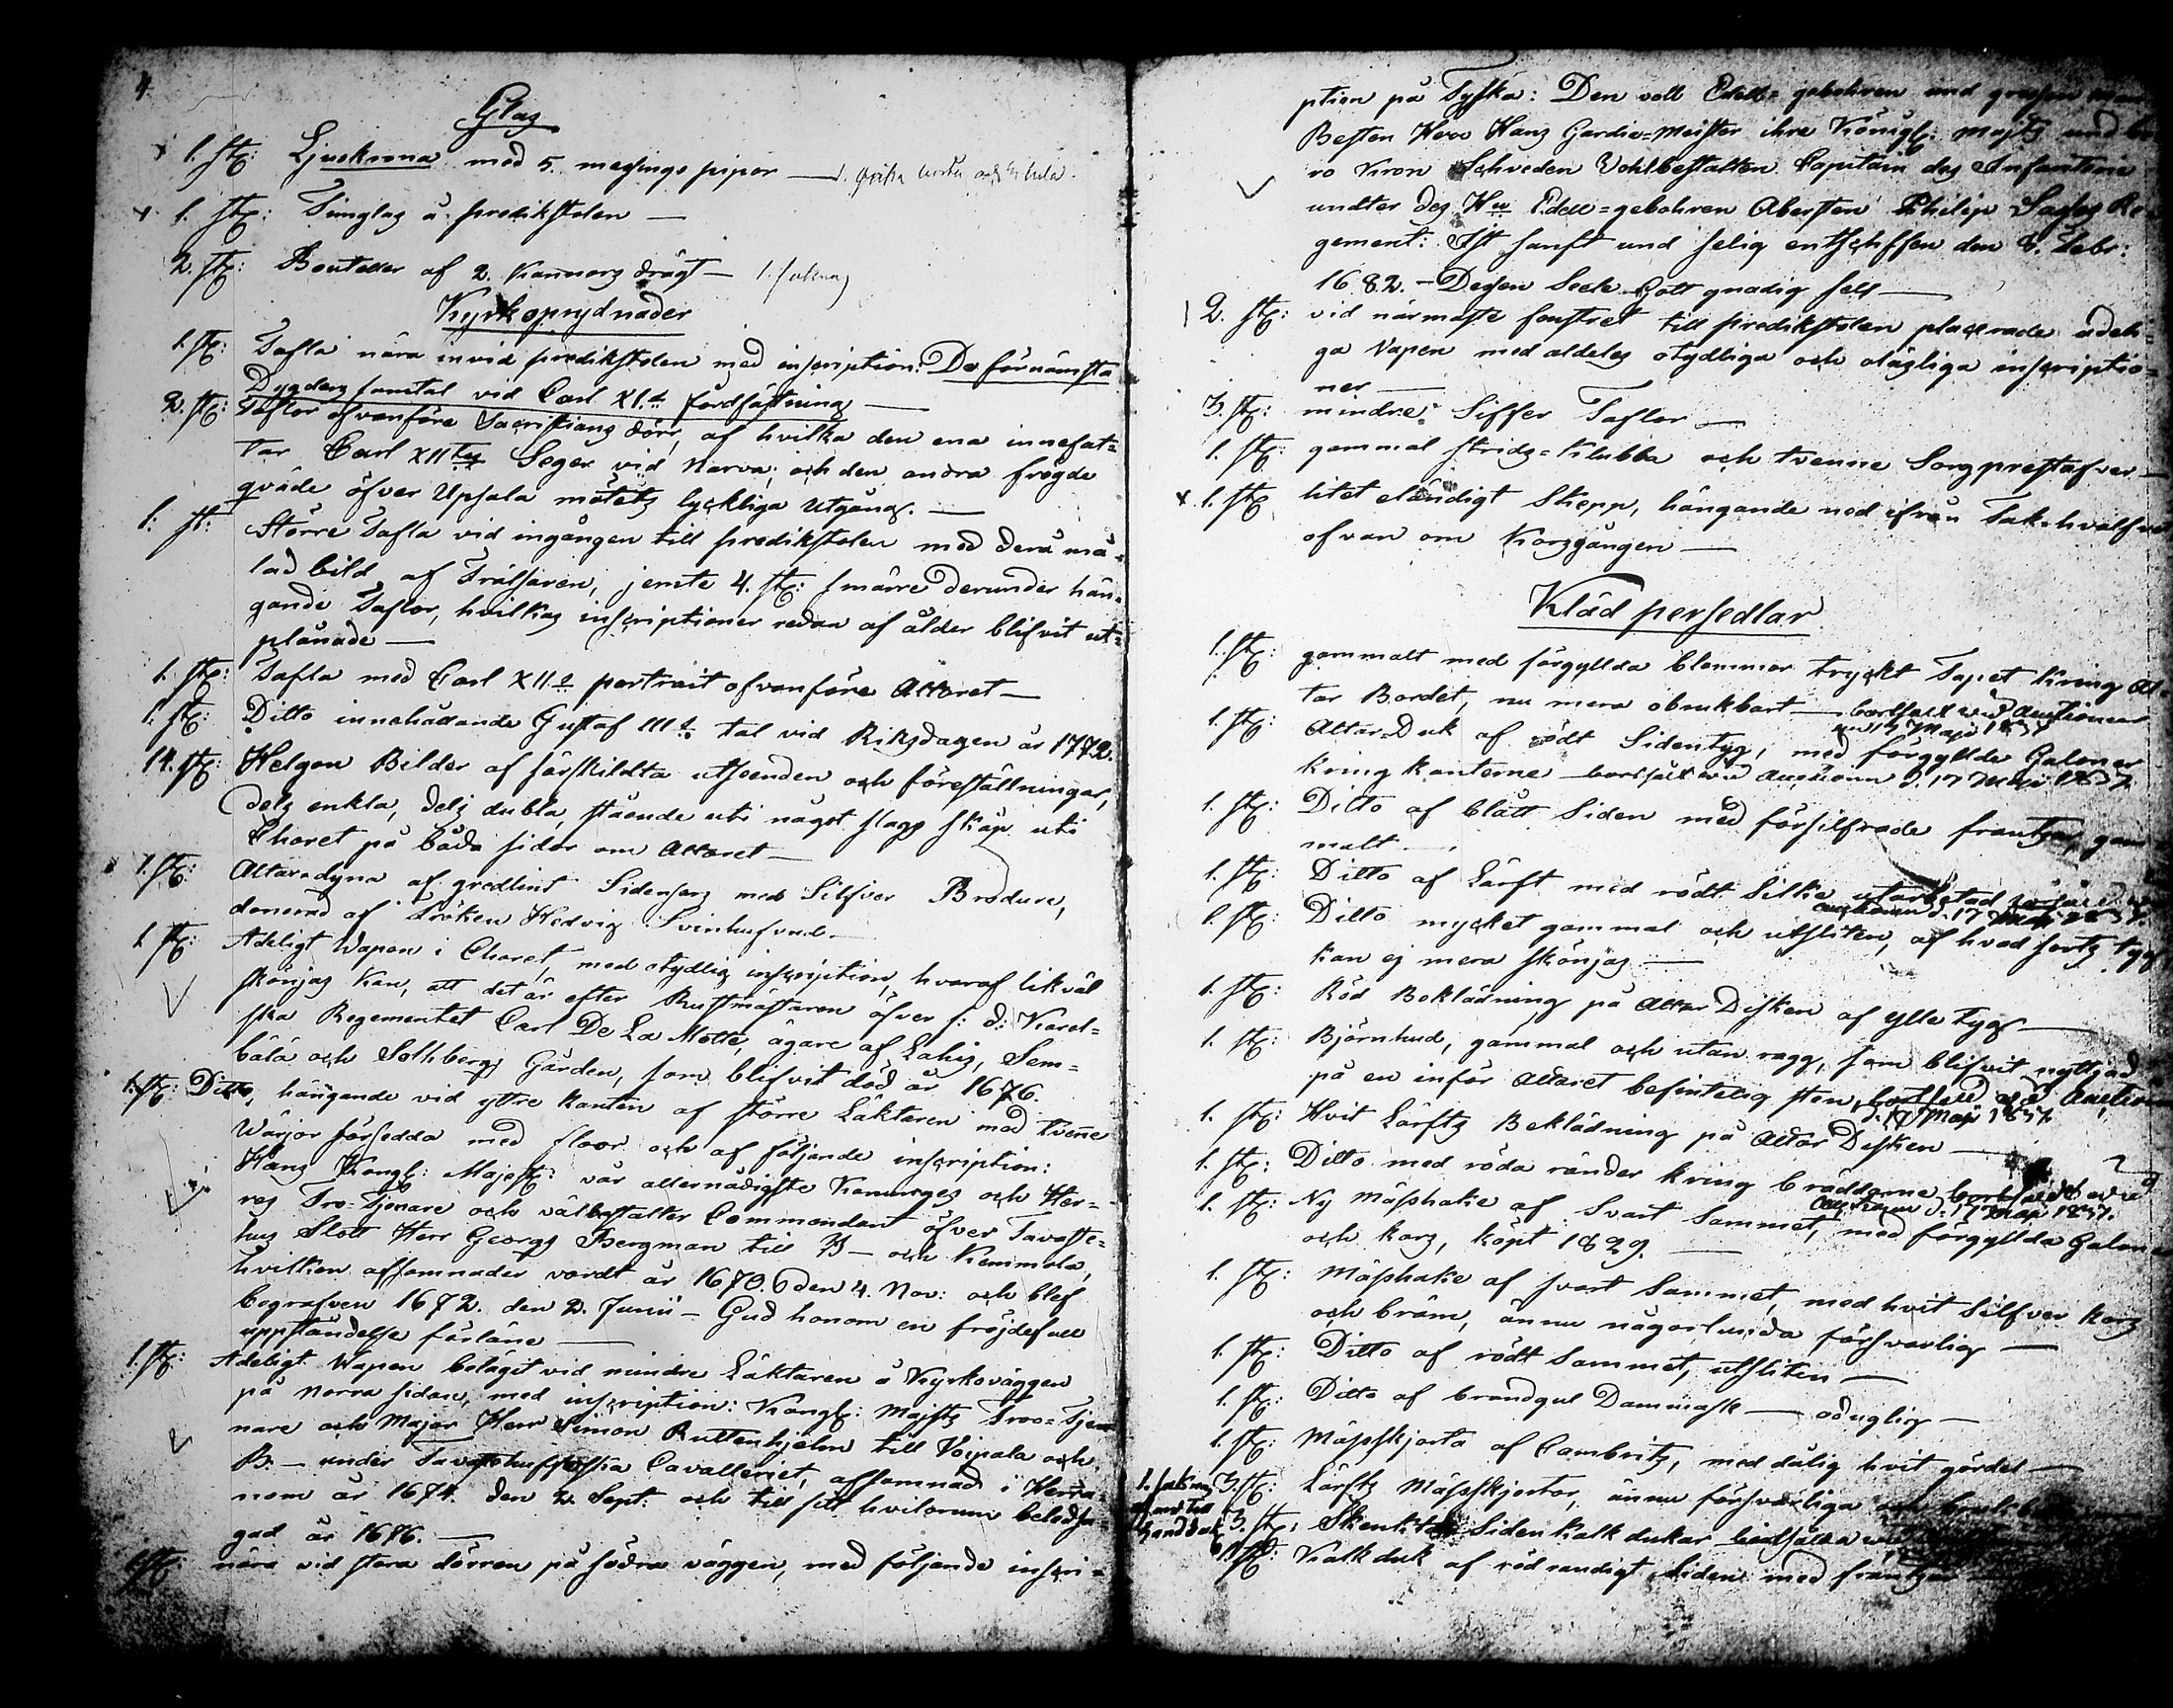 4.
Glas
1. st: Ljuskrona med 5. messings pipor —
1. st: Timglas å predikstolen —
2. st: Bouteller af 2. Kannors drägt — 1. saknas
Kyrkoprydnader
1. st: Tafla nära invid predikstolen med inscription: De förnämsta
Dygders samtal vid Carl XI.s jordfästning —
2. st: Taflor ofvanföre Sacristians dörr, af hvilka den ena innefat=
tar Carl XII tes Seger vid Narva; och den andra frögde
qväde öfver Upsala mötets lyckliga utgång. —
1: st: Större Tafla vid ingången till predikstolen med derå må=
lad bild af Frälsaren, jemte 4. st: smärre derunder hän=
gande Taflor, hvilkas inscriptioner redan af ålder blifvit ut=
plånade —
1. st: Tafla med Carl XII.s portrait ofvanföre Altaret —
1. st: Ditto innehållande Gustaf III.s tal vid Riksdagen år 1772.
14. st: Helgon Bilder af särskildta utseenden och föreställningar,
dels enkla, dels dubla, stående uti något slags skåp uti
Choret på båda sidor om Altaret —
1. st: Altaredyna af gredlint Sidensars med Silfver Brodure,
donerad af Fröken Hedvig Svinhufvud —
1 st: Adeligt Wapen i Choret, med otydlig inscription, hvaraf likväl
skönjas kan, att det är efter Ruttmästaren öfver s: d: Karel=
ska Regementet Carl De La Motte, ägare af Lahis, Sem=
bälä och Sothbergs Gården, som blifvit död år 1676.
1. st: Ditto, hängande vid yttre kanten af större Läktaren med tvenne
Wärjor försedda med floor och af följande inscription:
Hans Kongl: Majest: vår allernådigste Konunges och Her=
res Tro-Tjenare och välbestalter Commendant öfver Tavaste=
hus Slott Herr Georgs Bergman till B — och Kemmola,
hvilken afsomnader vordt år 1670. den 4. Nov: och blef
begrafven 1672. den 2. Junii — Gud honom en fröjdefull
uppståndelse förläne —
1. st: Adeligt Wapen beläget vid mindre Läktaren å Kyrkoväggen
på norra sidan, med inscription: Kongl: Majsts Troo=Tjen
nare och Major Herr Simon Ruttenhjelm till Voipala och
B. — under Tavastehusska Cavalleriet, afsomnad i Herra=
nom år 1674. den 2. Sept: och till sitt hvilorum beledsa=
gad år 1676. —
1 st: nära vid stora dörren på södra väggen, med följande inscri=
ption på Tyska: Den voll Edell= gebohren und
Besten Herr Hans Gardie=Meister ihre Königl: Majts und
ro Kron Schveden Vohlbestalten Capitain des Infanterie
undter des Hrn Edell=gebohren Obersten Philip Re=
gement: Ist sanft und selig entschlffen den 8. Febr:
1682. — Dessen Seele Gott gnadig sell —
2. st: vid närmaste fenstret till predikstolen placerade adeli=
ga Vapen med aldeles otydliga och olägliga inscriptio=
ner —
3. st: mindre Siffer Taflor —
1. st: gammal strids=Klubba och tvenne Sorgprestafver —
1. st: litet eländigt Skepp, hängande ned ifrån Tak-hvalfvet
ofvan om Korsgången —
Kläd persedlar
1. st: gammalt med förgyllda blommor tryckt Tapet kring Al=
tar Bordet, nu mera obrukbart — bortsält vid Auctionen
den 17 Maji 1837
1. st: Altar=Duk af rödt Sidentyg, med förgyllda Galoner
kring kanterne — bortsält vid Auctionen d. 17 Maji 1837.
1. st: Ditto af blått Siden med försilfrade frantsar, gam
malt.
1. st: Ditto af Lärft med rödt Silke utarbetad
Auctionen d. 17 Maji 1837.
1. st: Ditto mycket gammal och utsliten, af hvad sorts tyg
kan ej mera skönjas —
1. st: Röd Beklädning på Altar Disken af ylle tyg —
1. st: Björnhud, gammal och utan ragg, som blifvit nyttjad
på en inför Altaret befintelig sten, bortsåld vid Auction
d. 17 Maji 1837.
1. st: Hvit Lärfts Beklädning på Altar Disken —
1. st: Ditto med röda ränder kring bräddarne bortsåld vid
Auctionen d. 17 Maji 1837.
1. st: Ny Mässhake af Svart Sammet, med förgyllda Galoner
och kors, köpt 1829. —
1. st: Mässhake af svart Sammet, med hvit Silfver kors
och bräm, ännu någorlunda försvarlig —
1. st: Ditto af rödt Sammet, utsliten —
1. st: Ditto af brandgul Dammask — oduglig —
1. st: Mässkjorta af Cambrits, med dålig hvit gördel —
1. saknas
3. st: Lärfts Mässkjortor, ännu försvarliga och
3. st: Siden Kalkdukar bortsälda
st: Kalkduk af rödrandigt Siden med frantsar